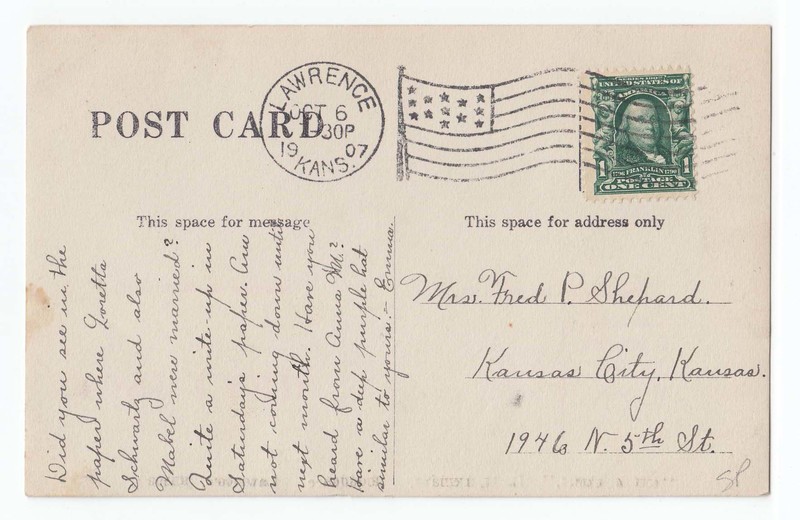 POST CARD
LAWRENCE
OCT 6
30P
19 07
KANS.
SERIES 1902
UNITED STATES OF
AMERICA
1 1
1706 FRANKLIN 1790
POSTAGE
ONE CENT
This space for message
This space for address only
Did you see in the
paper where Loretta
Schwartz and also
Mabel were married?
Quite a write-up in
Saturdays paper. Am
not coming down until
next month. Have you
heard from Anna
Have a deep purple hat
similar to yours. – Emma.
Mrs. Fred P. Shepard.
Kansas City, Kansas.
1946 N. 5th St.